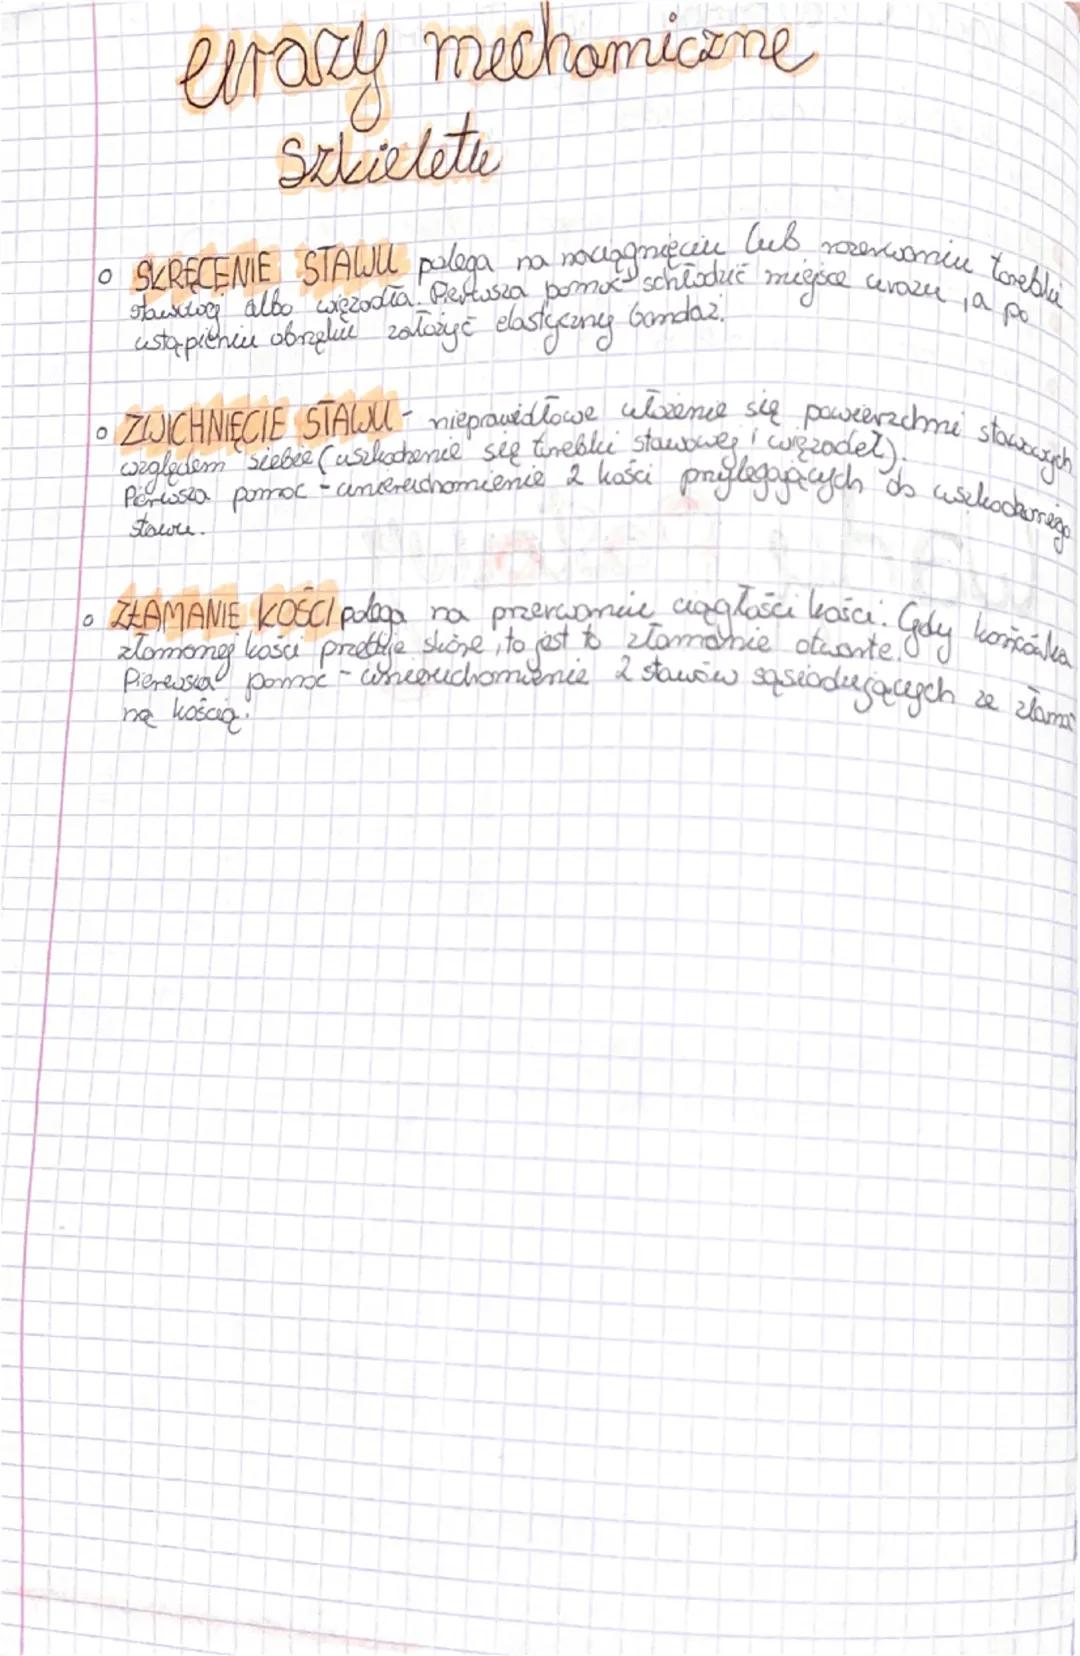 urazy mechaniczne
szkieletu
SKRĘCENIE STAWU polega na naciągnięciu lub rozerwaniu torebki
stawowej albo więzadła. Pierwsza pomoc - schłodzić miejsce urazu, a po
ustąpieniu obrzęku założyć elastyczny bandaż.
ZWICHNIĘCIE STAWU - nieprawidłowe ułożenie się powierzchni stawowych
względem siebie (uszkodzenie się torebki stawowej i więzadeł).
Pierwsza pomoc - unieruchomienie 2 kości przylegających do uszkodzonego
stawu.
ZŁAMANIE KOŚCI polega na przerwaniu ciągłości kości. Gdy końcówka
złamanej kości przebije skórę, to jest to złamanie otwarte.
Pierwsza pomoc - unieruchomienie 2 stawów sąsiadujących ze złama
ną kością.